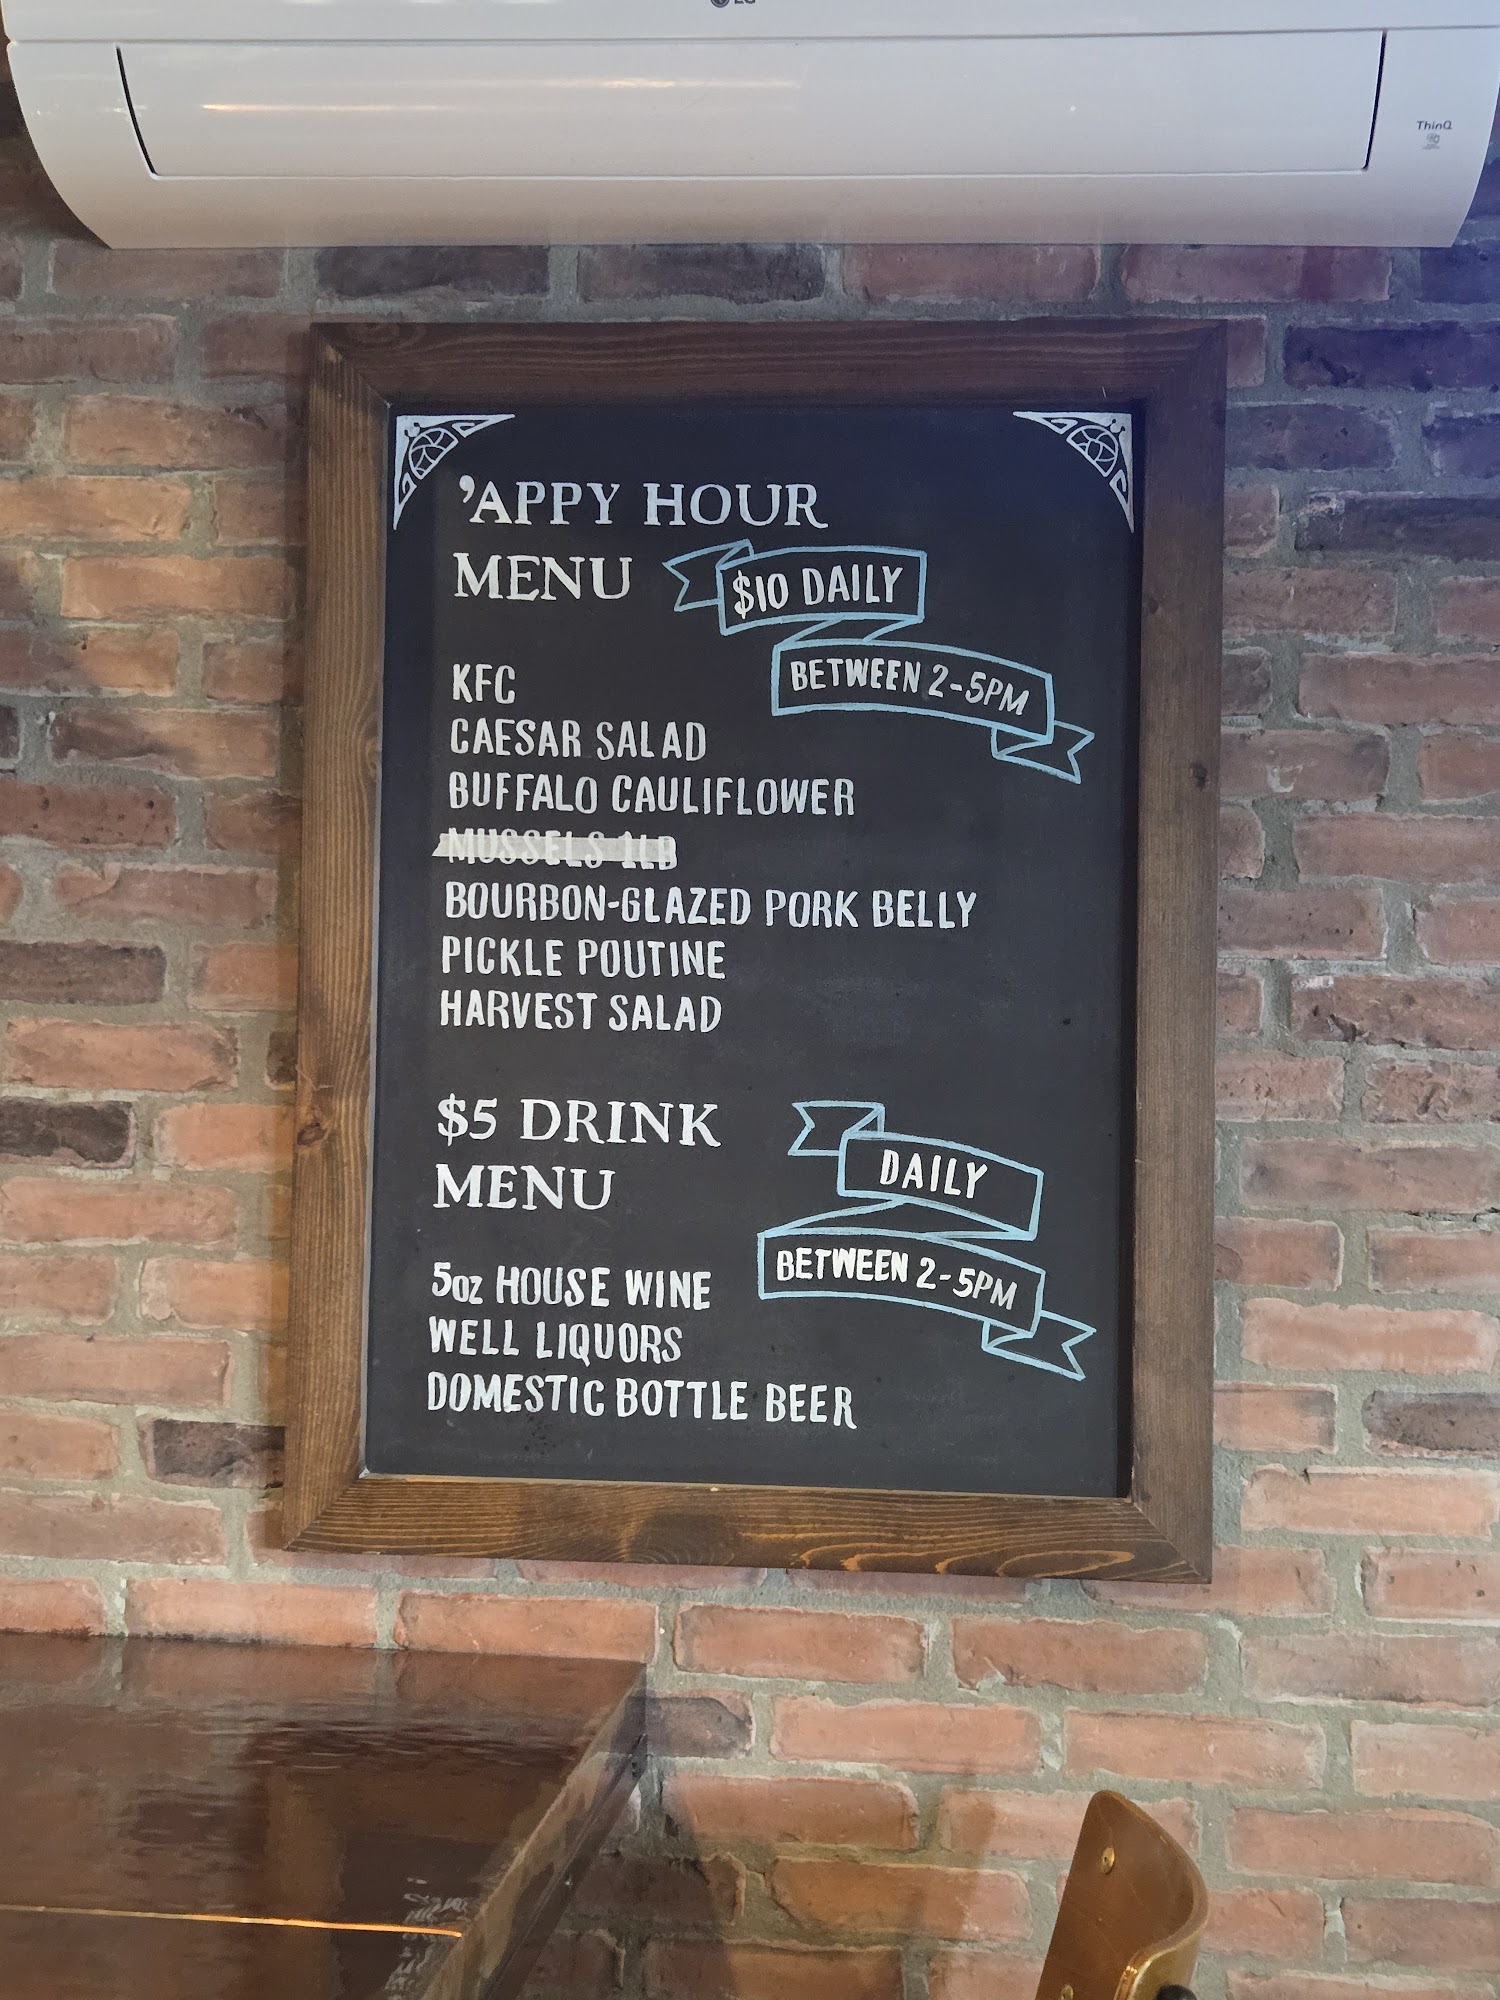 LG
ThinQ
'APPY HOUR
MENU
$10 DAILY
BETWEEN 2-5PM
KFC
CAESAR SALAD
BUFFALO CAULIFLOWER
MUSSELS 1LB
BOURBON-GLAZED PORK BELLY
PICKLE POUTINE
HARVEST SALAD
$5 DRINK
MENU
DAILY
BETWEEN 2-5PM
5oz HOUSE WINE
WELL LIQUORS
DOMESTIC BOTTLE BEER